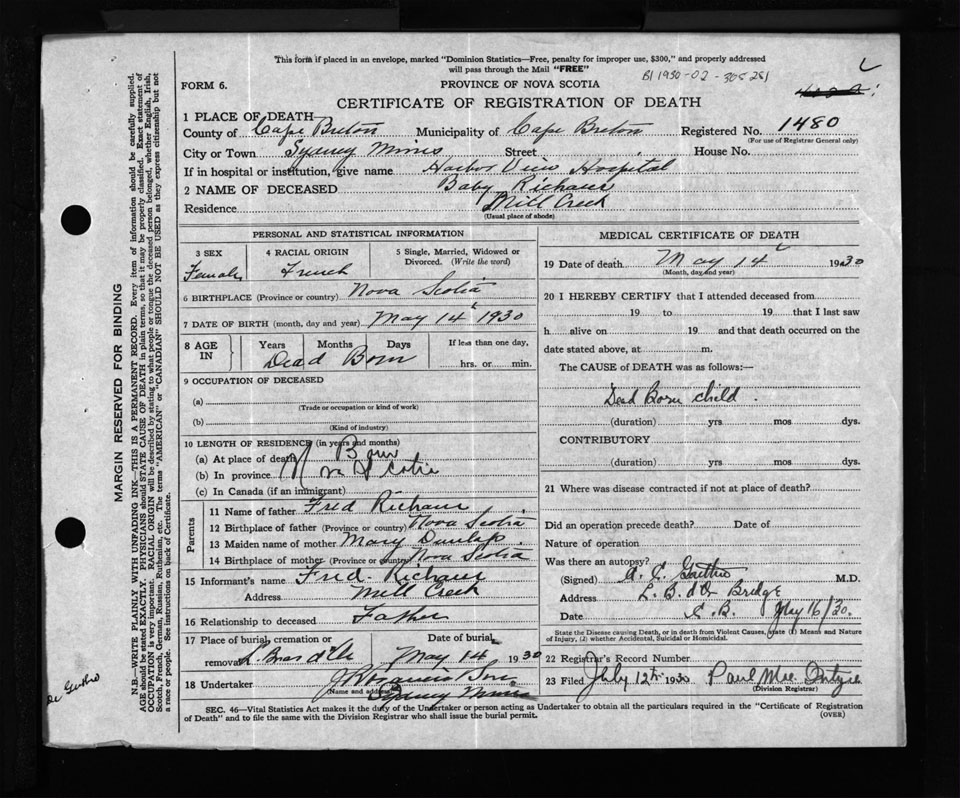 This form if placed in an envelope, marked "Dominion Statistics—Free, penalty for improper use, $300," and properly addressed
will pass through the Mail "FREE"
FORM 6. PROVINCE OF NOVA SCOTIA
CERTIFICATE OF REGISTRATION OF DEATH
1 PLACE OF DEATH—
County of Cape Breton Municipality of Cape Breton Registered No. 1480
(For use of Registrar General only)
City or Town Sydney Mines Street House No.
If in hospital or institution, give name Harbor View Hospital
2 NAME OF DECEASED Baby
Residence Mill Creek
(Usual place of abode)
PERSONAL AND STATISTICAL INFORMATION
3 SEX 4 RACIAL ORIGIN 5 Single, Married, Widowed or
Divorced. (Write the word)
Female French
6 BIRTHPLACE (Province or country) Nova Scotia
7 DATE OF BIRTH (month, day and year) May 14 1930
8 AGE IN Years Months Days If less than one day,
Dead Born hrs. or min.
9 OCCUPATION OF DECEASED
(a)
(Trade or occupation or kind of work)
(b)
(Kind of industry)
10 LENGTH OF RESIDENCE (in years and months)
(a) At place of death Born
(b) In province Nova Scotia
(c) In Canada (if an immigrant)
Parents
11 Name of father Fred
12 Birthplace of father (Province or country) Nova Scotia
13 Maiden name of mother Mary Dunlap.
14 Birthplace of mother (Province or country) Nova Scotia
15 Informant's name Fred.
Address Mill Creek
16 Relationship to deceased Father
17 Place of burial, cremation or Date of burial
removal May 14 1930
18 Undertaker
(Name and address) Sydney Mines
MEDICAL CERTIFICATE OF DEATH
19 Date of death May 14 1930
(Month, day and year)
20 I HEREBY CERTIFY that I attended deceased from
19 to 19 that I last saw
h alive on 19 and that death occurred on the
date stated above, at m.
The CAUSE of DEATH was as follows:—
Dead Born child.
(duration) yrs mos dys.
CONTRIBUTORY
(duration) yrs mos dys.
21 Where was disease contracted if not at place of death?
Did an operation precede death? Date of
Nature of operation
Was there an autopsy?
(Signed) M.D.
Address Bridge
Date C.B. July 16/30.
State the Disease causing Death, or in death from Violent Causes, state (1) Means and Nature
of Injury, (2) whether Accidental, Suicidal or Homicidal.
22 Registrar's Record Number
23 Filed July 12th 1930 Paul
(Division Registrar)
SEC. 46—Vital Statistics Act makes it the duty of the Undertaker or person acting as Undertaker to obtain all the particulars required in the "Certificate of Registration
of Death" and to file the same with the Division Registrar who shall issue the burial permit. (OVER)
MARGIN RESERVED FOR BINDING
N.B.—WRITE PLAINLY WITH UNFADING INK—THIS IS A PERMANENT RECORD. Every item of information should be carefully supplied.
AGE should be stated EXACTLY. PHYSICIANS should STATE CAUSE OF DEATH in plain terms, so that it may be properly classified. Exact statement of
OCCUPATION is very important. RACIAL ORIGIN will be described by stating to what people or tongue the deceased person belonged, whether English, Irish,
Scotch, French, German, Russian, Ruthenian, etc. The terms "AMERICAN" or "CANADIAN" SHOULD NOT BE USED as they express citizenship but not
a race or people. See instructions on back of Certificate.